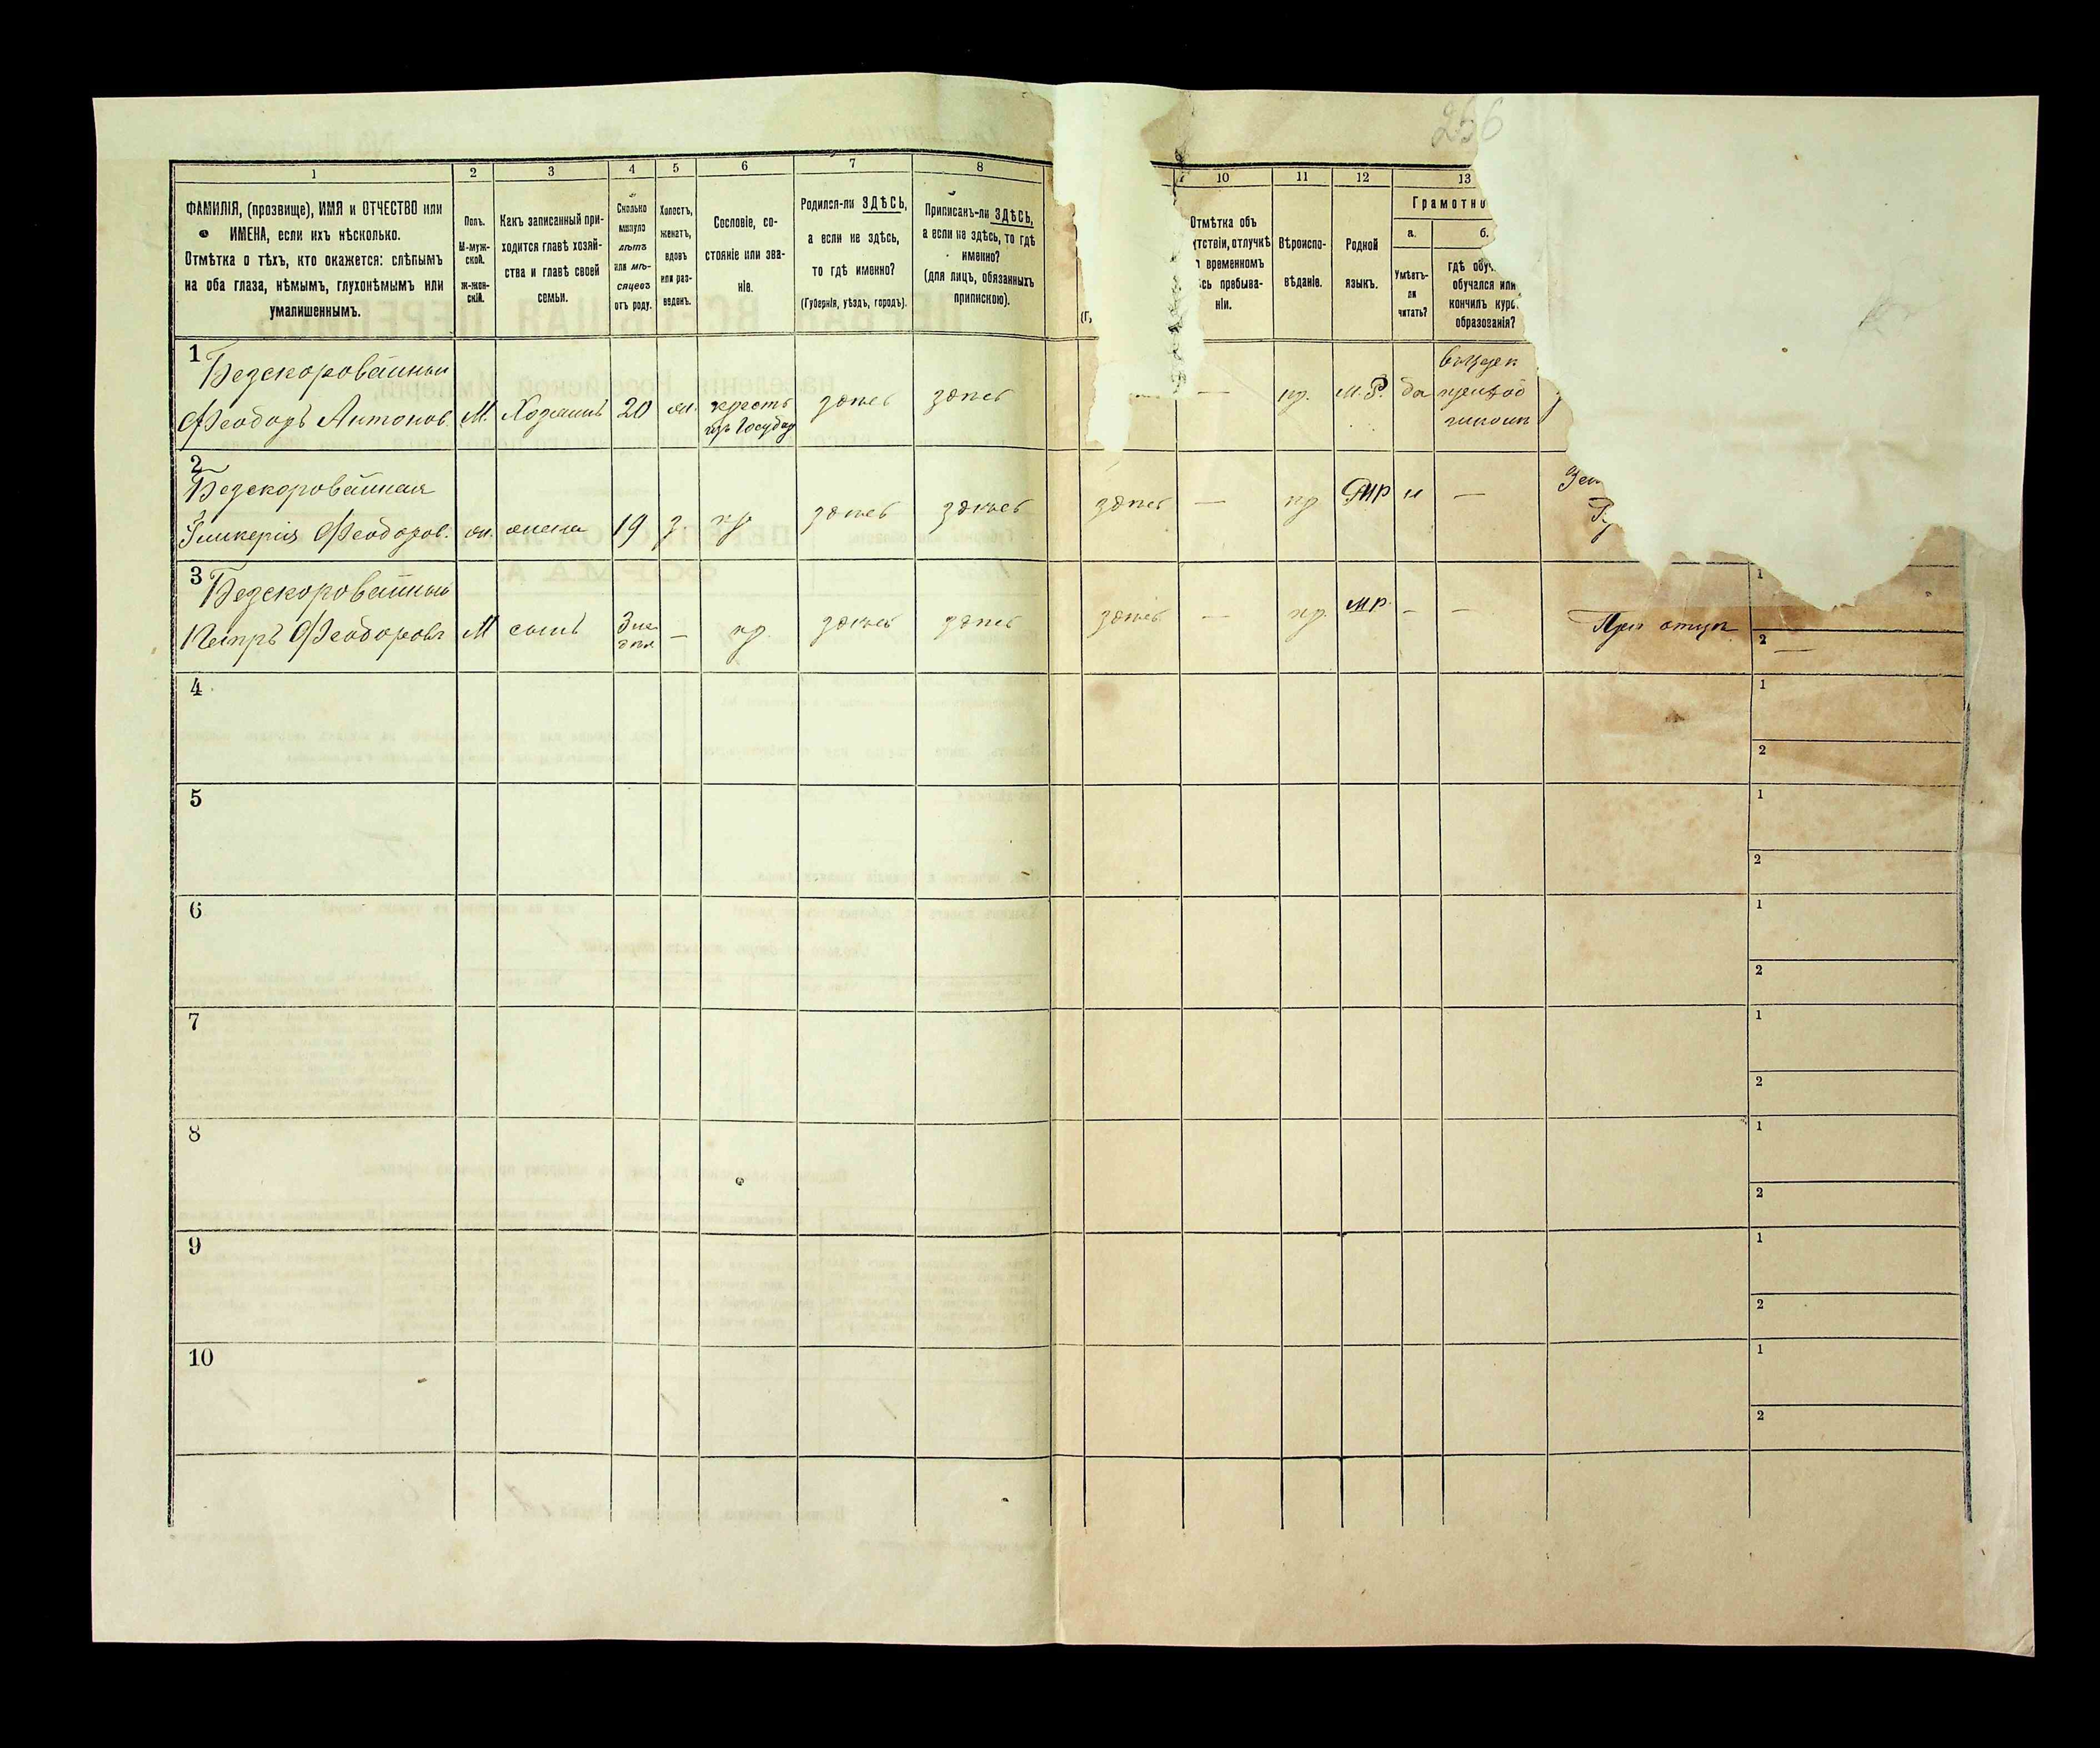 256
1 2 3 4 5 6 7 8 10 11 12 13
ФАМИЛІЯ, (прозвище), ИМЯ и ОТЧЕСТВО или
ИМЕНА, если ихъ нѣсколько.
Отмѣтка о тѣхъ, кто окажется: слѣпымъ
на оба глаза, нѣмымъ, глухонѣмымъ или
умалишеннымъ.
Полъ.
М-муж-
ской.
ж-жен-
скій.
Какъ записанный при-
ходится главѣ хозяй-
ства и главѣ своей
семьи.
Сколько
минуло
лѣтъ
или мѣ-
сяцевъ
отъ роду.
Холостъ,
женатъ,
вдовъ
или раз-
веденъ.
Сословіе, со-
стояніе или зва-
ніе.
Родился-ли ЗДѢСЬ,
а если не здѣсь,
то гдѣ именно?
(Губернія, уѣздъ, городъ).
Приписанъ-ли ЗДѢСЬ,
а если не здѣсь, то гдѣ
именно?
(для лицъ, обязанныхъ
припискою).
(Г,
Отмѣтка объ
тствіи, отлучкѣ
временномъ
сь пребыва-
ніи.
Вѣроиспо-
вѣданіе.
Родной
языкъ.
Грамотно
а.
Умѣетъ-
ли
читать?
б.
гдѣ обуч
обучался или
кончилъ курс
образованія?
1
Безскоровайный
Феодоръ Антонов. М. Хозяинъ 20 ж. крестъ изъ Государ здѣсь здѣсь — пр. М.Р. да
2
Безскоровайная
Гликерія Феодоров. ж. жена 19 з кр здѣсь здѣсь здѣсь — пр МР н —
3
Безскоровайный
Петръ Феодоровъ М сынъ кр. здѣсь здѣсь здѣсь — пр. МР. — — При отцѣ
1
2 —
4 1
2
5 1
2
6 1
2
7 1
2
8 1
2
9 1
2
10 1
2